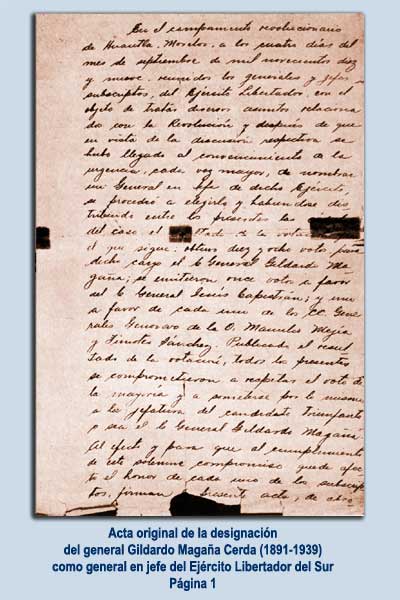 En el campamento revolucionario
de Huautla, Morelos, a los cuatro dias del
mes de septiembre de mil novecientos diez
y nueve, reunidos los generales y jefes
subscriptos, del Ejército Libertador, con el
objeto de tratar diversos asuntos relaciona
dos con la Revolución y después de que
en vista de la discusión respectiva se
hubo llegado al convencimiento de la
urgencia, cada vez mayor, de nombrar
un General en Jefe de dicho Ejército,
se procedió a elegirlo y habiéndose dis
tribuido entre los presentes las
del caso el de la votación
el que sigue: obtuvo diez y ocho votos para
dicho cargo el C. General Gildardo Ma
gaña; se emitieron once votos a favor
del C. General Jesús Capistrán; y uno
a favor de cada uno de los CC. Gene
rales Genovevo de la O, Maurilio Mejía
y Timoteo Sánchez. Publicado el resul
tado de la votación, todos los presentes
se comprometieron a respetar el voto de
la mayoría y a someterse por lo mismo
a la jefatura del candidato triunfante
o sea el C. General Gildardo Magaña.
Al efecto y para que al cumplimiento
de este solemne compromiso quede afec
to el honor de cada uno de los subscrip
tos, firman presente acta, de
Acta original de la designación
del general Gildardo Magaña Cerda (1891-1939)
como general en jefe del Ejército Libertador del Sur
Página 1